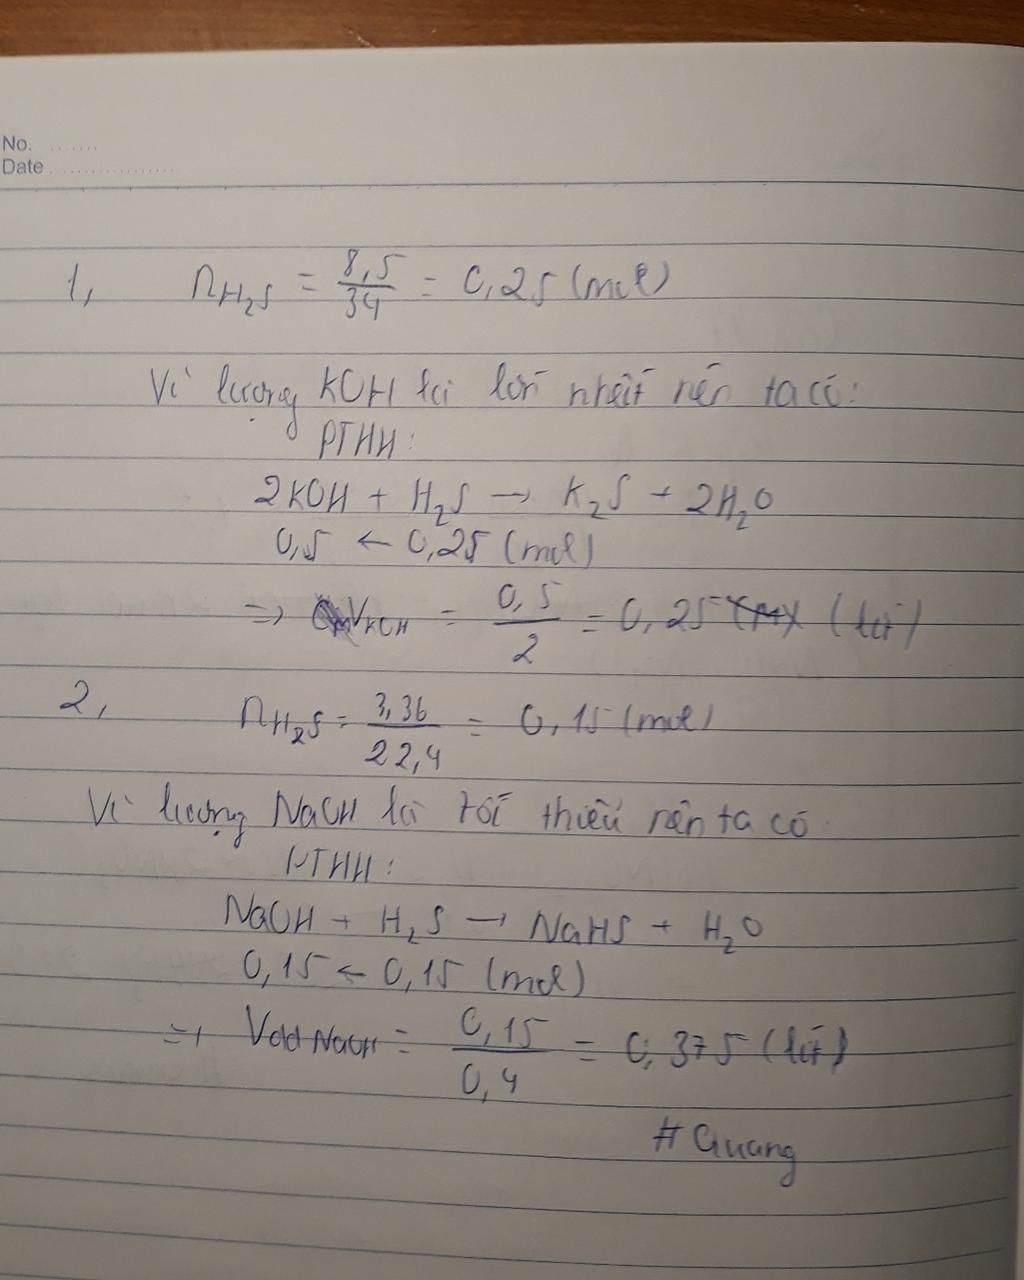 No. .......
Date ..................
1, nH₂S = 8,5/34 = 0,25 (mol)
Vì lượng KOH là lớn nhất nên ta có:
PTHH:
2KOH + H₂S → K₂S + 2H₂O
0,5 ← 0,25 (mol)
=> VKOH = 0,5/2 = 0,25 (lít)
2, nH₂S = 3,36/22,4 = 0,15 (mol)
Vì lượng NaOH là tối thiểu nên ta có
PTHH:
NaOH + H₂S → NaHS + H₂O
0,15 ← 0,15 (mol)
=> Vdd NaOH = 0,15/0,4 = 0,375 (lít)
# Quang